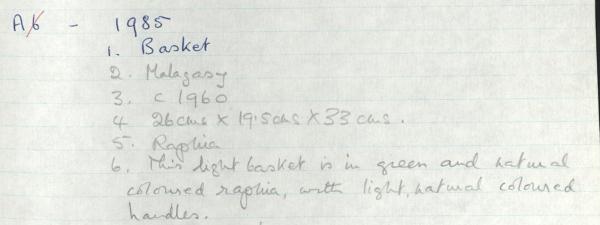 A6 - 1985
1. Basket
2. Malagasy
3. c 1960
4 26cms x 19.5cms x 33 cms.
5. Raphia
6. This light basket is in green and natural
coloured raphia, with light, natural coloured
handles.